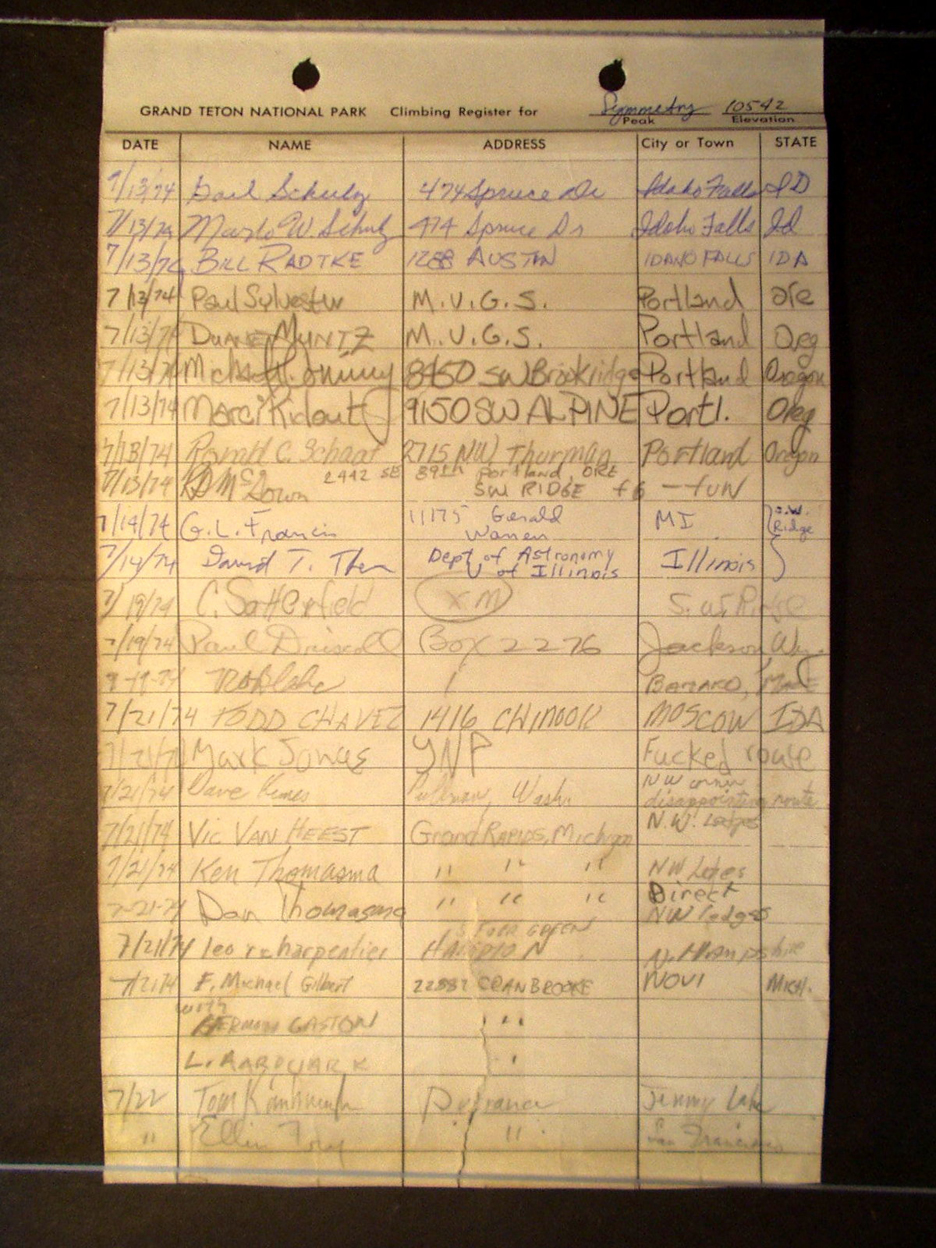 GRAND TETON NATIONAL PARK Climbing Register for Symmetry 10542
Peak Elevation
DATE NAME ADDRESS City or Town STATE
7/13/74 Schulz 474 Spruce Dr Idaho Falls ID
7/13/74 W. Schulz 474 Spruce Dr Idaho Falls Id
7/13/74 BILL RADTKE 1288 AUSTIN IDAHO FALLS IDA
7/13/74 Paul Sylvester M.V.G.S. Portland Ore
7/13/74 DUANE MUNTZ M.V.G.S. Portland Oreg
7/13/74 8450 SW Brookridge Portland Oregon
7/13/74 Marci Ridout 9150 SW ALPINE Portl. Oreg
7/13/74 Ronald C. Schaaf 2715 NW Thurman Portland Oregon
7/13/74 McGown 2442 SE 89th Portland, ORE
SW RIDGE - FUN
7/14/74 G.L. Francis 11175 Gerald MI S.W.
Warren Ridge
7/14/74 David T. Dept of Astronomy Illinois
U of Illinois
7/19/74 C. Satterfield XM S.W. Ridge
7/19/74 Paul Driscoll Box 2276 Jackson, Wy.
7/21/74 TODD CHAVEZ 1416 CHINOOK MOSCOW IDA
7/21/74 Mark Jonas YNP Fucked route
7/21/74 Dave Pullman, Wash. NW corner
disappointing route
7/21/74 VIC VAN HEEST Grand RAPIDS, Michigan N.W. Ledges
7/21/74 Ken Thomasma " " " NW Ledges
Direct
7-21-74 Dan Thomasma " " " NW ledges
7/21/74 leo r charpentier N. Hampshire
7/21/74 F. Michael Gilbert 22582 CRANBROOKE NOVI MICH.
with
HERMAN GASTON "
L. AARDVARK "
7/22 Tom Jenny Lake
" Ellen " San Francisco